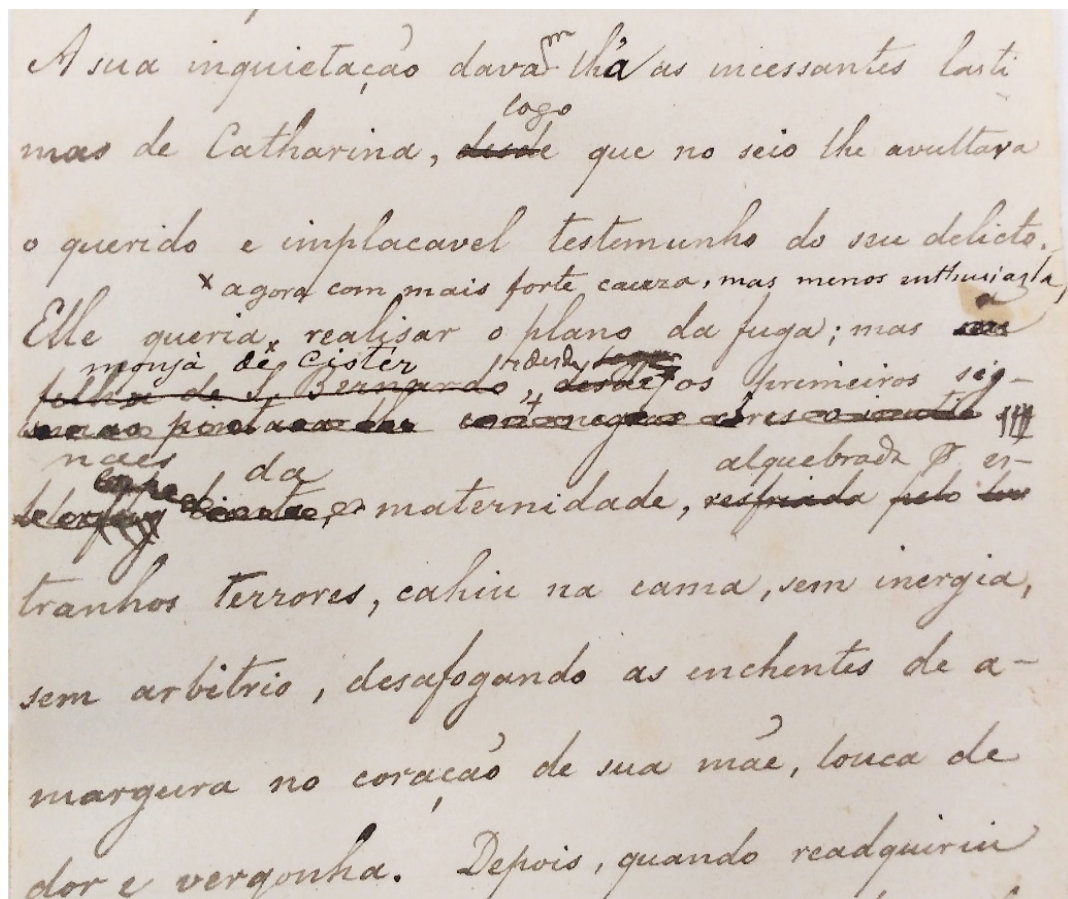 A sua inquietação davam lh'a as incessantes lasti
logo
mas de Catharina, desde que no seio lhe avultara
o querido e implacavel testemunho do seu delicto.
x agora com mais forte cauza, mas menos enthusiasta,
a
Elle queria x realisar o plano da fuga; mas
monja de Cister desde
filha de S. Bernardo, desde os primeiros sig-
naes da alquebrada por es-
maternidade, resfriada pelo
tranhos terrores, cahiu na cama, sem inergia,
sem arbitrio, desafogando as enchentes de a-
margura no coração de sua mãe, louca de
dor e vergonha. Depois, quando readquiriu